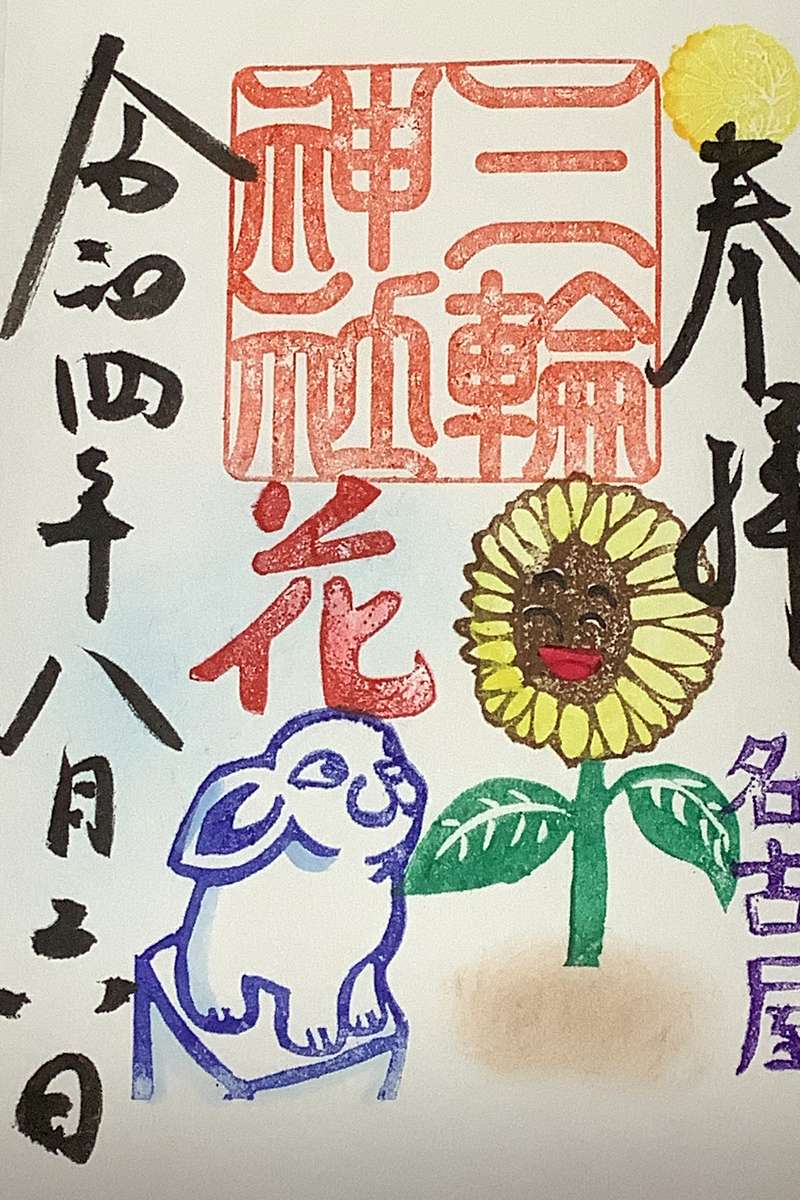 奉拝
名古屋
三輪
神社
花
令和四年八月六日